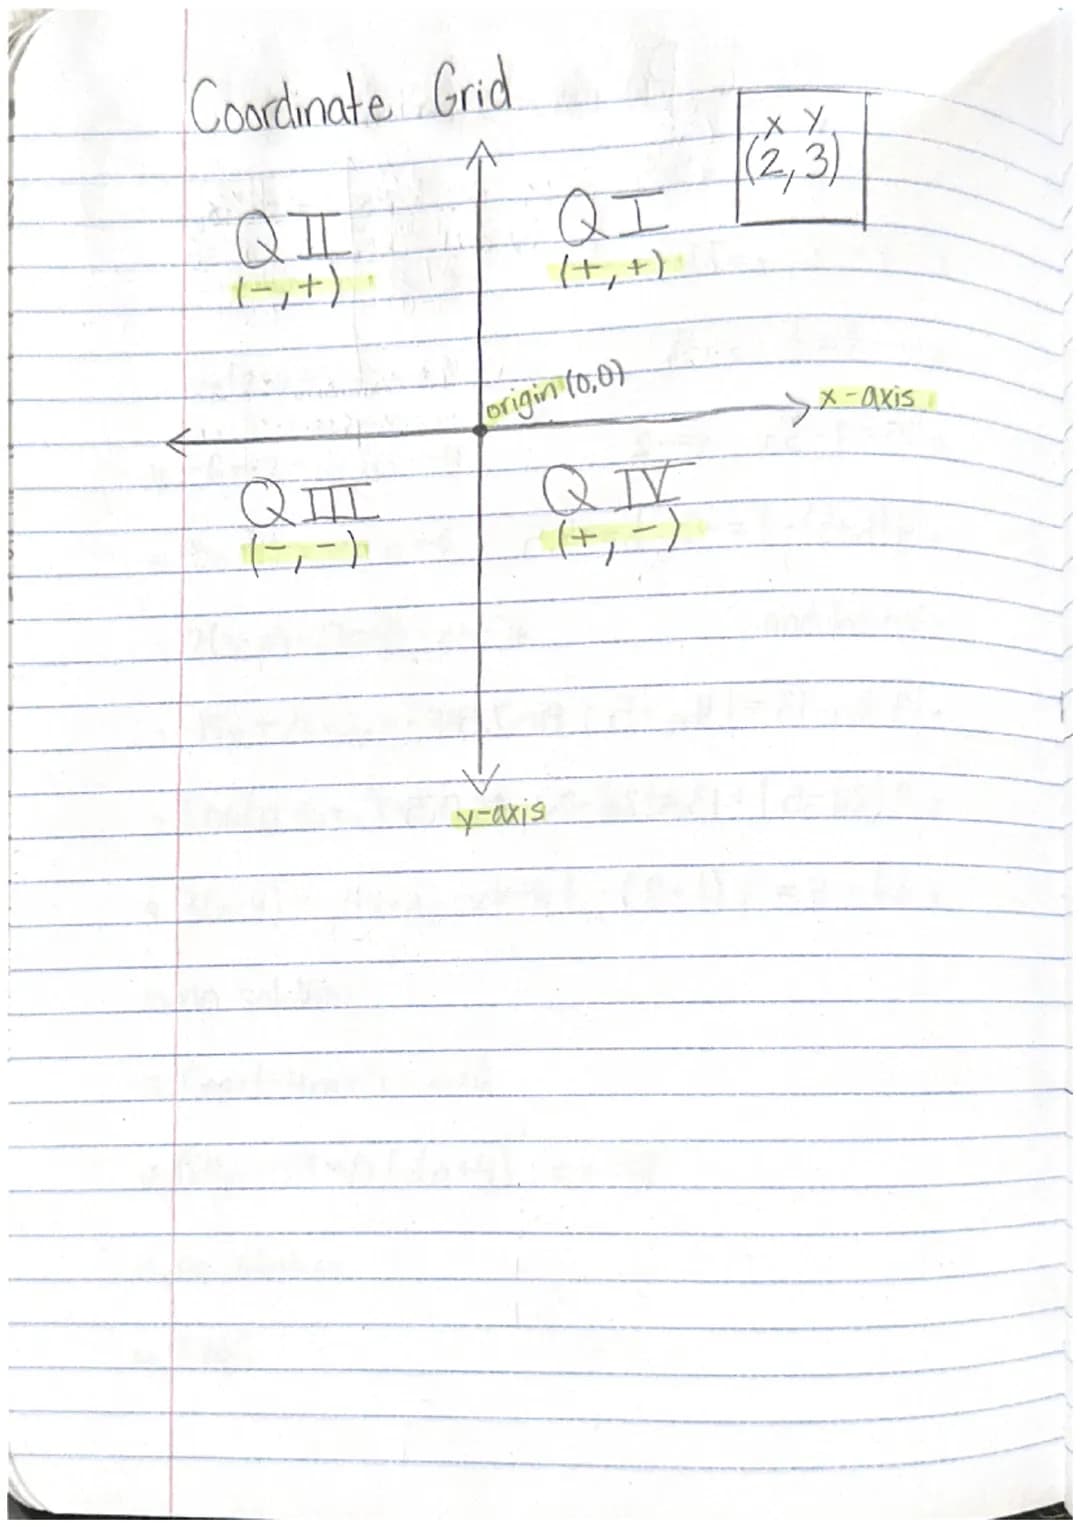 Coordinate Grid
X Y
(2, 3)
Q II
(-, +)
Q I
(+, +)
origin (0,0)
x-axis
Q III
(-, -)
Q IV
(+, -)
y-axis